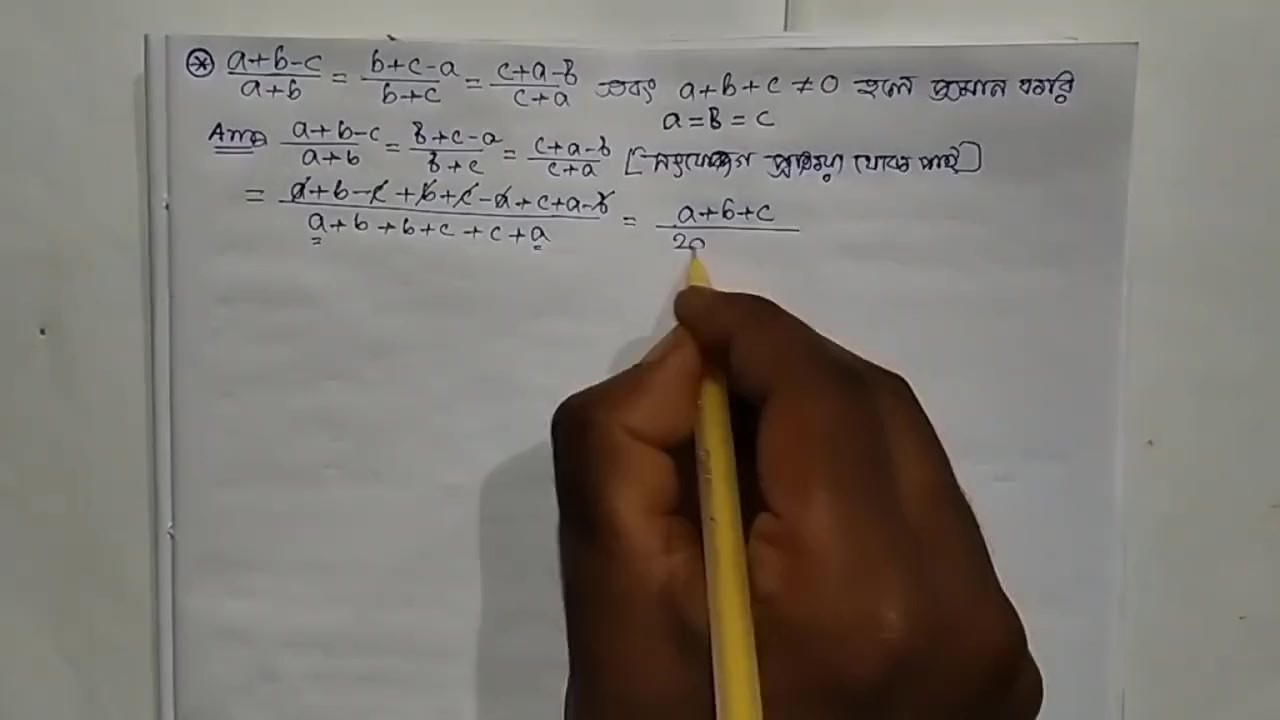 ⊛ (a+b-c)/(a+b) = (b+c-a)/(b+c) = (c+a-b)/(c+a) এবং a+b+c ≠ 0 হলে প্রমান করি
a=b=c
Ans (a+b-c)/(a+b) = (b+c-a)/(b+c) = (c+a-b)/(c+a) [সংযোজন প্রক্রিয়া থেকে পাই]
= (a+b-c+b+c-a+c+a-b)/(a+b+b+c+c+a) = (a+b+c)/(2a